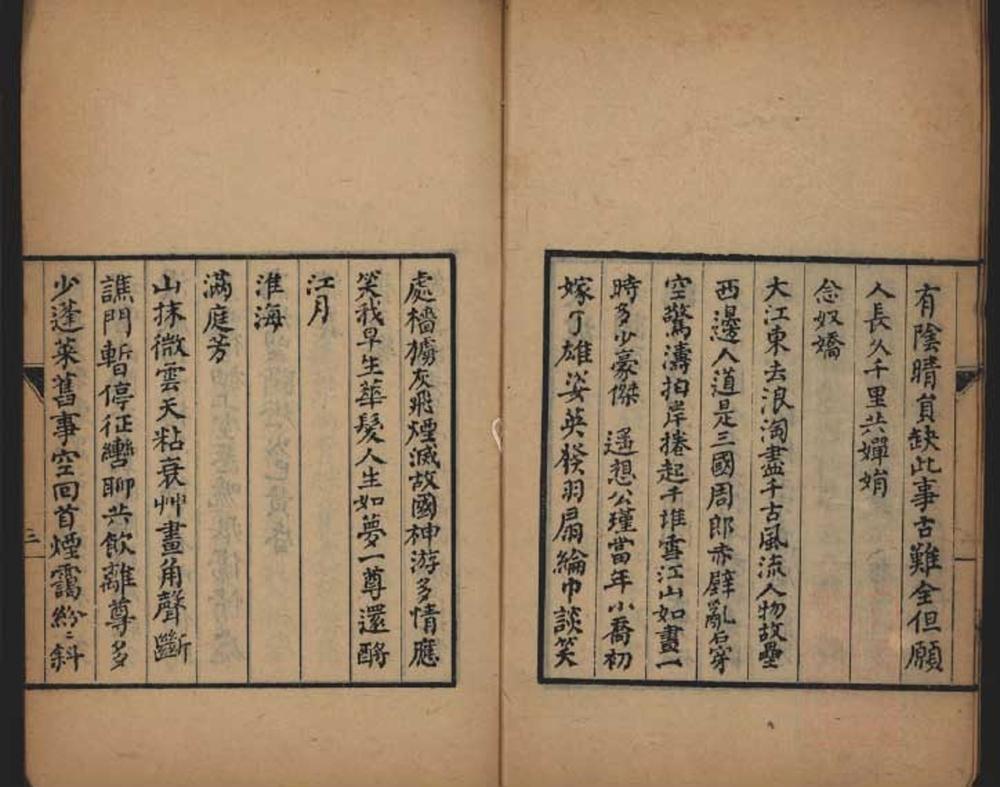 有陰晴貟缺此事古難全但願
人長久千里共嬋娟
念奴嬌
大江東去浪淘盡千古風流人物故壘
西邊人道是三國周郎赤壁亂石穿
空驚濤拍岸捲起千堆雪江山如畫一
時多少豪傑 遥想公瑾當年小喬初
嫁了雄姿英發羽扇綸巾談笑
處檣擄灰飛煙滅故國神游多情應
笑我早生華髮人生如夢一尊還酹
江月
淮海
滿庭芳
山抹微雲天粘衰艸畫角聲斷
譙門暫停征轡聊共飲離尊多
少蓬萊舊事空回首煙靄紛〻斜
三